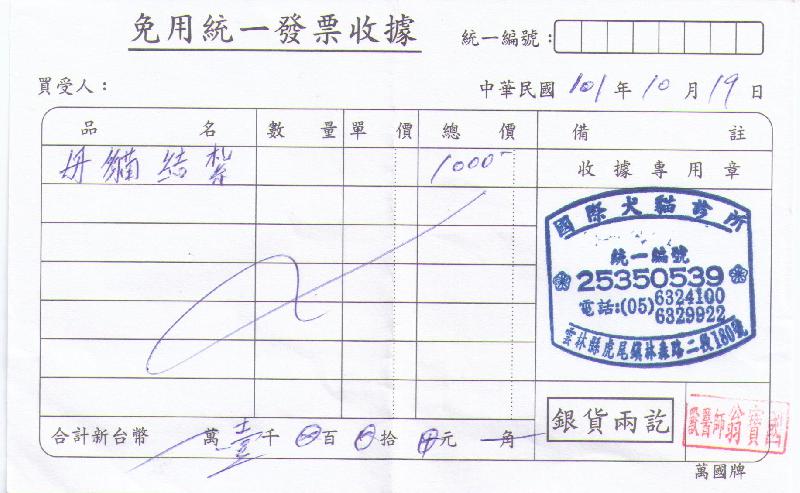 免用統一發票收據
統一編號：
買受人：
中華民國 101 年 10 月 19 日
品名 數量 單價 總價 備註
母貓結紮 1000 收據專用章
國際犬貓診所
統一編號
25350539
電話:(05)6324100
6329922
雲林縣虎尾鎮林森路二段180號
銀貨兩訖
合計新台幣 萬 壹 千 0 百 0 拾 0 元 角
獸醫師翁寶國
萬國牌